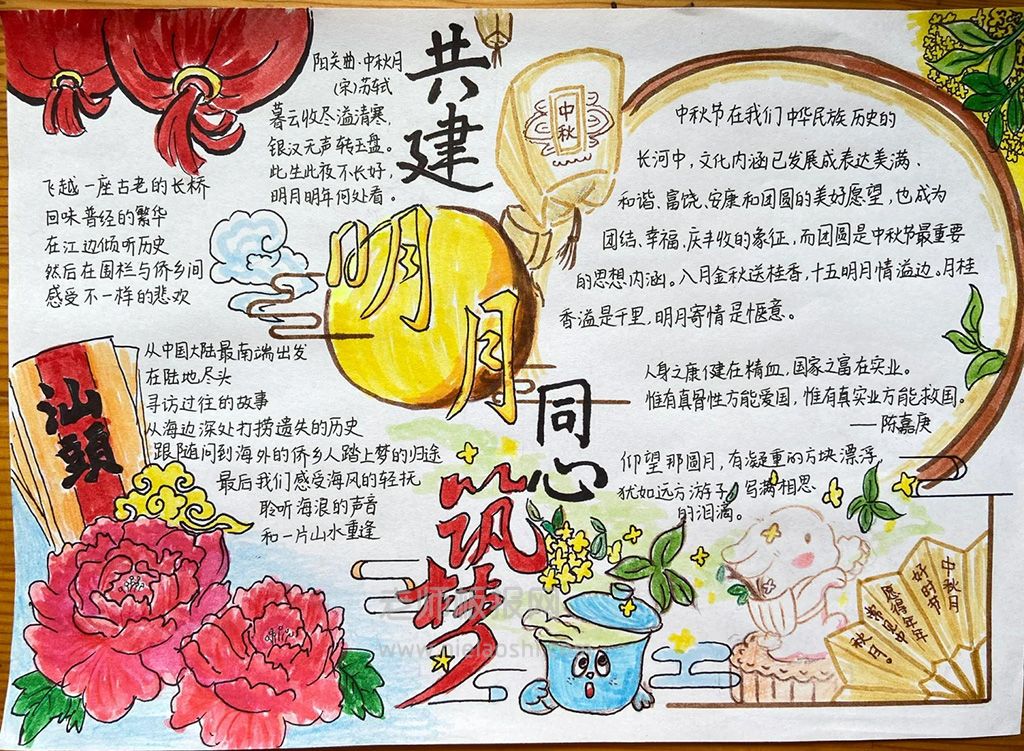 共建
明月
同心
筑梦
阳关曲·中秋月
(宋)苏轼
暮云收尽溢清寒,
银汉无声转玉盘。
此生此夜不长好,
明月明年何处看。
中秋
中秋节在我们中华民族历史的
长河中,文化内涵已发展成表达美满、
和谐、富饶、安康和团圆的美好愿望,也成为
团结、幸福、庆丰收的象征,而团圆是中秋节最重要
的思想内涵。八月金秋送桂香,十五明月情溢边。月桂
香溢是千里,明月寄情是惬意。
飞越一座古老的长桥
回味普经的繁华
在江边倾听历史
然后在围栏与侨乡间
感受不一样的悲欢
汕頭
从中国大陆最南端出发
在陆地尽头
寻访过往的故事
从海边深处打捞遗失的历史
跟随问到海外的侨乡人踏上梦的归途
最后我们感受海风的轻抚
聆听海浪的声音
和一片山水重逢
人身之康健在精血,国家之富在实业。
惟有真骨性方能爱国,惟有真实业方能救国。
——陈嘉庚
仰望那圆月,有凝重的方块漂浮,
犹如远方游子,写满相思
的泪滴。
中秋月
好时节
愿得年年
常见中
秋月。
老师板报网